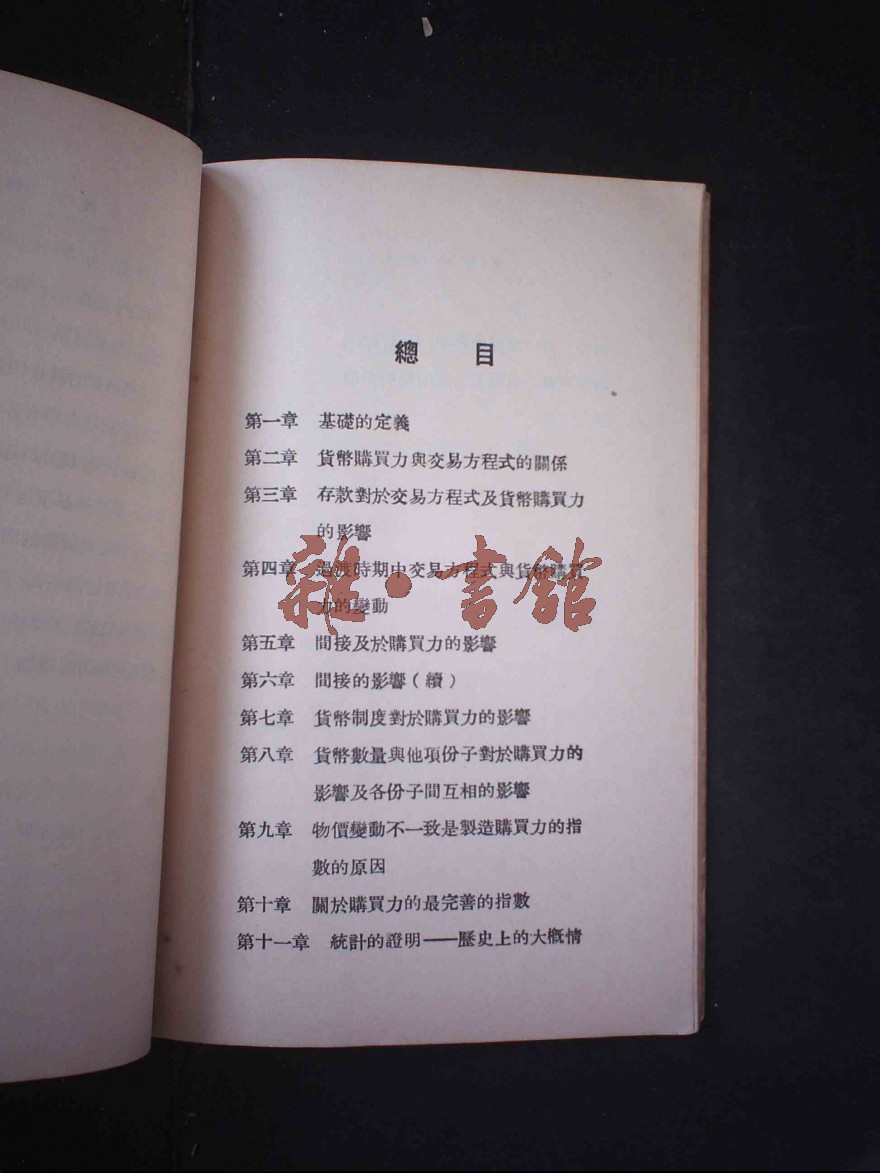 總 目
第一章 基礎的定義
第二章 貨幣購買力與交易方程式的關係
第三章 存款對於交易方程式及貨幣購買力
的影響
第四章 過渡時期中交易方程式與貨幣購買
力的變動
第五章 間接及於購買力的影響
第六章 間接的影響(續)
第七章 貨幣制度對於購買力的影響
第八章 貨幣數量與他項份子對於購買力的
影響及各份子間互相的影響
第九章 物價變動不一致是製造購買力的指
數的原因
第十章 關於購買力的最完善的指數
第十一章 統計的證明——歷史上的大概情
雜·書館